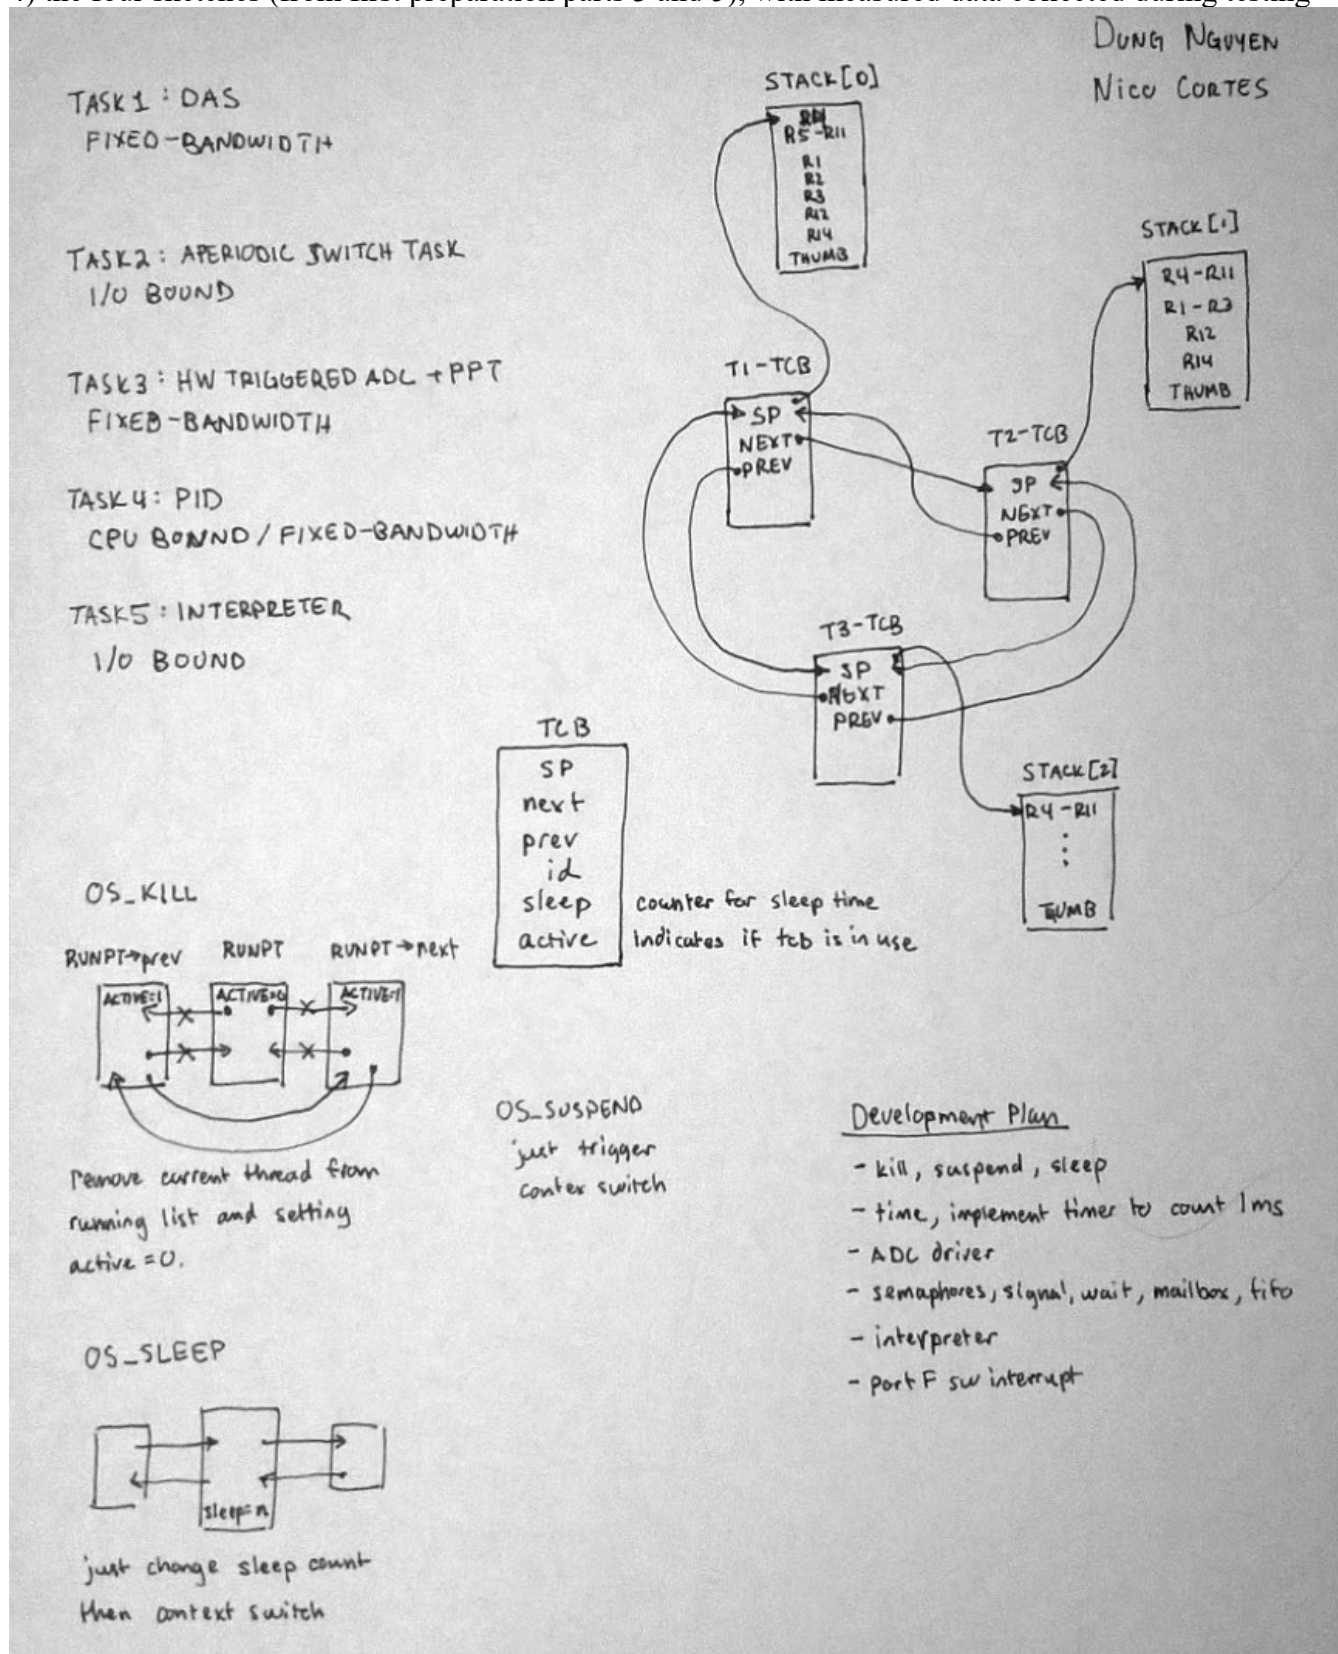 4) the four sketches (from first preparation parts 3 and 5), with measured data collected during testing
DUNG NGUYEN
NICO CORTES
TASK1: DAS
FIXED-BANDWIDTH
TASK2: APERIODIC SWITCH TASK
I/O BOUND
TASK3: HW TRIGGERED ADC + PPT
FIXED-BANDWIDTH
TASK4: PID
CPU BONND / FIXED-BANDWIDTH
TASK5: INTERPRETER
I/O BOUND
STACK[0]
R5-R11
R1
R2
R3
R12
R14
THUMB
STACK[1]
R4-R11
R1-R3
R12
R14
THUMB
T1-TCB
SP
NEXT
PREV
T2-TCB
SP
NEXT
PREV
T3-TCB
SP
NEXT
PREV
STACK[2]
R4-R11
⋮
THUMB
TCB
SP
next
prev
id
sleep counter for sleep time
active indicates if tcb is in use
OS_KILL
RUNPT→prev RUNPT RUNPT→next
ACTIVE=1 ACTIVE=0 ACTIVE=1
remove current thread from
running list and setting
active = 0.
OS_SUSPEND
just trigger
contex switch
Development Plan
- kill, suspend, sleep
- time, implement timer to count 1ms
- ADC driver
- semaphores, signal, wait, mailbox, fifo
- interpreter
- port F sw interrupt
OS_SLEEP
sleep=n
just change sleep count
then context switch